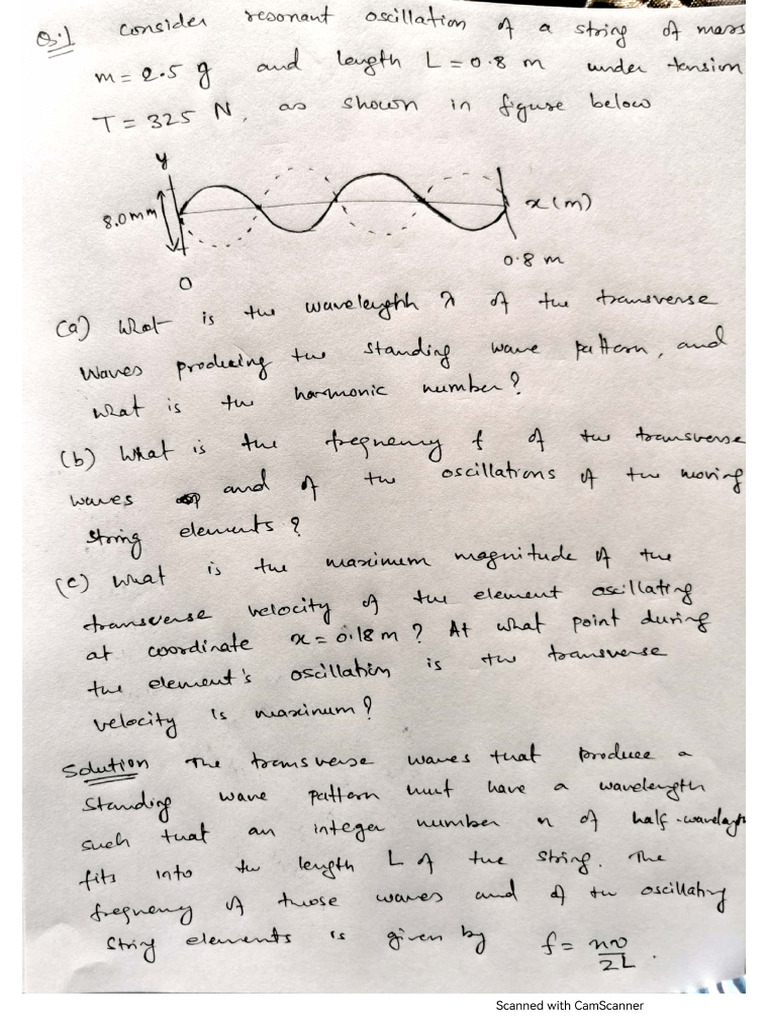 Q.1 Consider resonant oscillation of a string of mass
m = 2.5 g and length L = 0.8 m under tension
T = 325 N, as shown in figure below
y
8.0mm
x(m)
0.8 m
0
(a) What is the wavelength λ of the transverse
waves producing the standing wave pattern, and
what is the harmonic number?
(b) What is the frequency f of the transverse
waves and of the oscillations of the moving
string elements?
(c) What is the maximum magnitude of the
transverse velocity of the element oscillating
at coordinate x = 0.18 m? At what point during
the element's oscillation is the transverse
velocity is maximum?
Solution The transverse waves that produce a
standing wave pattern must have a wavelength
such that an integer number n of half-wavelength
fits into the length L of the string. The
frequency of those waves and of the oscillating
string elements is given by f = nv/2L.
Scanned with CamScanner